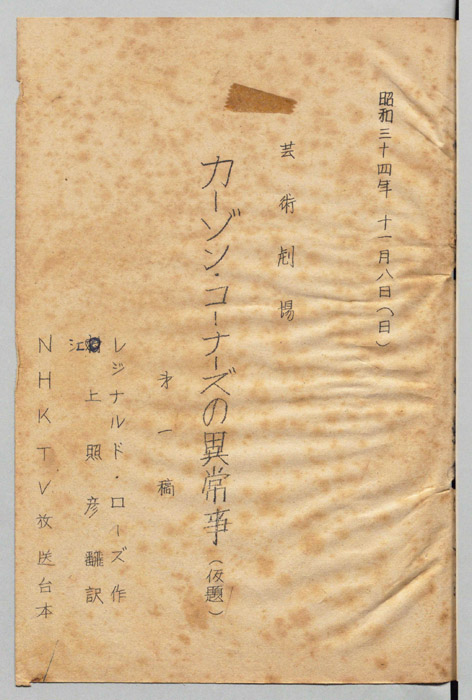 昭和三十四年 十一月八日(日)
芸術劇場
カーゾン・コーナーズの異常事(仮題)
才一稿
レジナルド・ローズ作
江上照彦飜訳
NHKTV放送台本